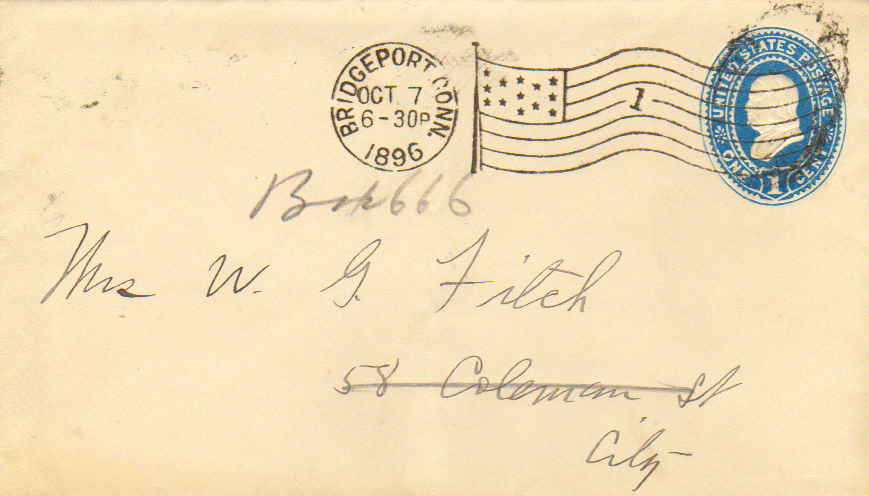 BRIDGEPORT, CONN.
OCT 7
6-30P
1896
1
UNITED STATES POSTAGE
ONE CENT
1
Box 666
Mrs W. G. Fitch
58 Coleman St
City